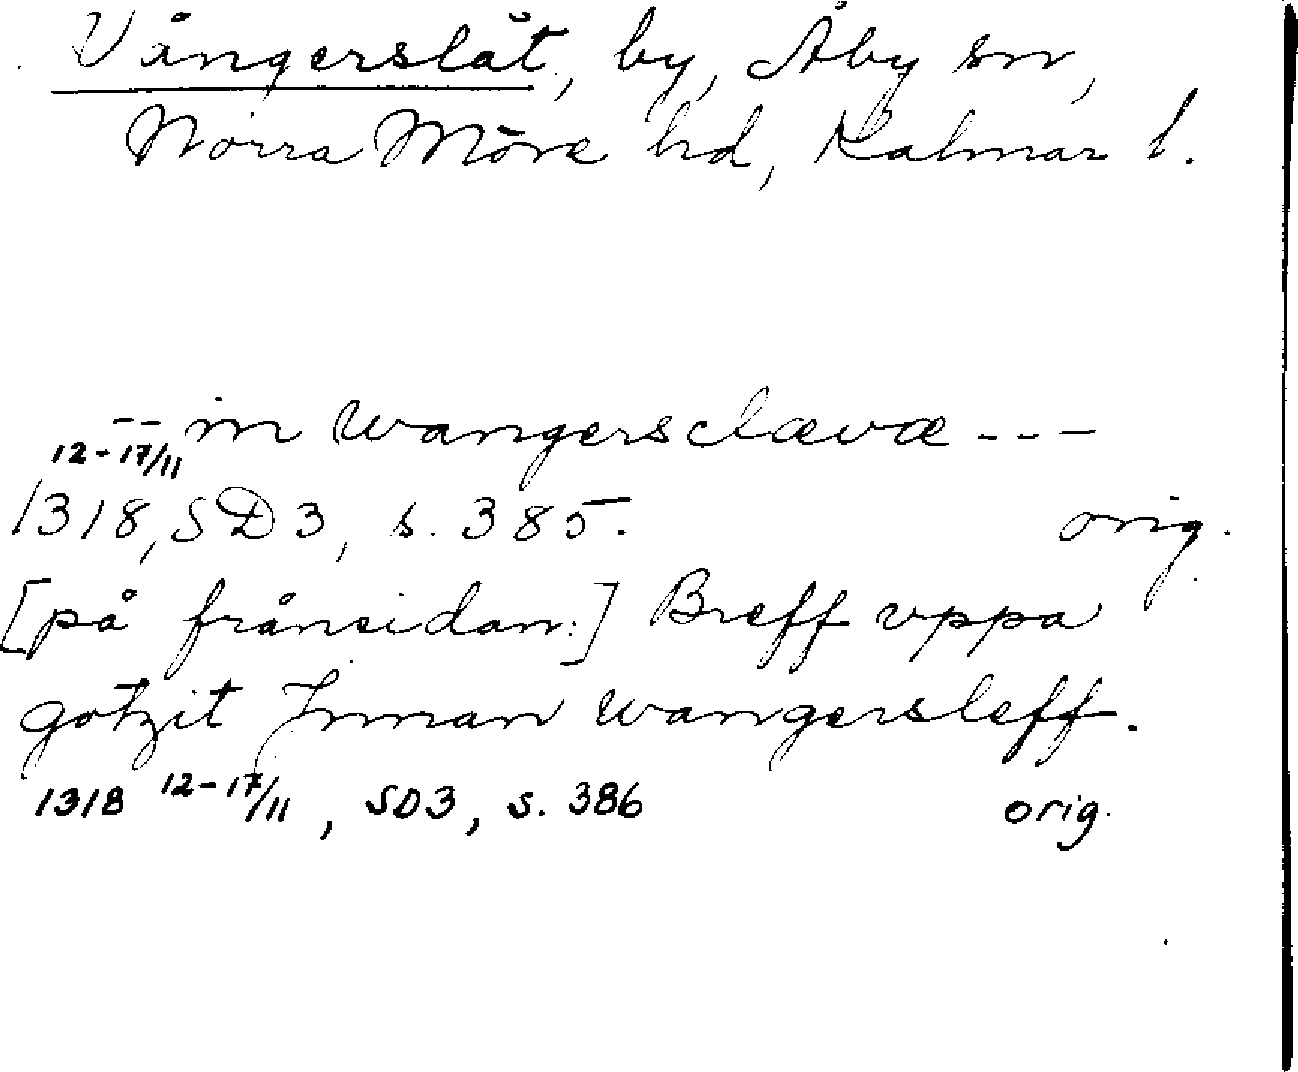 Vångerslät, by, Åby sn,
Norra Möre hd, Kalmar l.
-- in wangersclævæ ---
12-17/11
1318, SD 3, s. 385. orig.
[på frånsidan:] Breff vppa
gotzit Innan wangersleff.
1318 12-17/11, SD3, s. 386 orig.